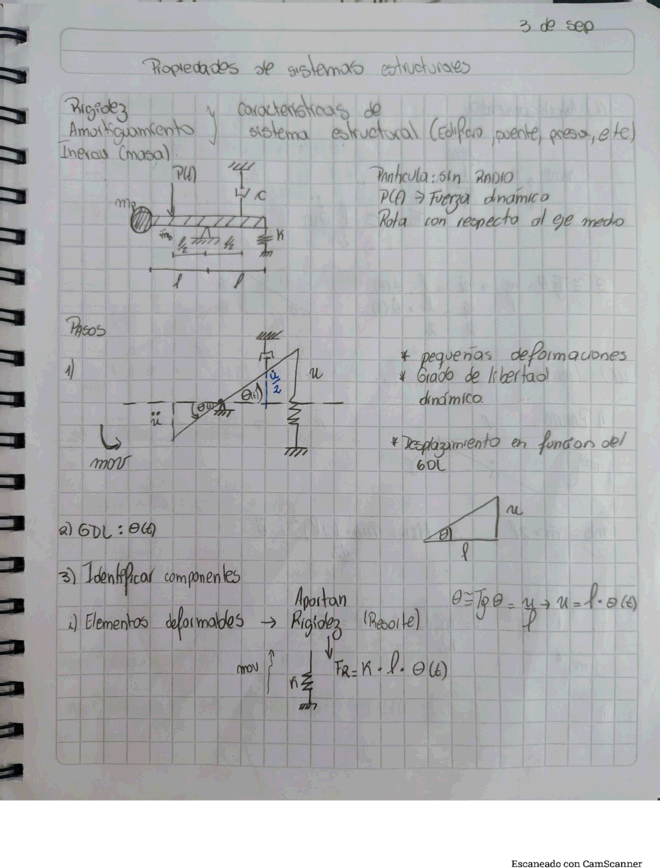 3 de sep
Propiedades de sistemas estructurales
Rigidez
Amortiguamiento
Inercia (masa)
y características de
sistema estructural (Edificio, puente, presa, etc)
P(t)
C
mp
K
l/2 l/2
l l
Partícula: sin RADIO
P(t) → Fuerza dinámica
Rota con respecto al eje medio
Pasos
1)
ü
θ(t)
θ(t)
u/2
u
mov
* pequeñas deformaciones
* Grado de libertad
dinámico
* Desplazamiento en funcion del
GDL
2) GDL : θ(t)
θ
u
l
3) Identificar componentes
i) Elementos deformables → Aportan
Rigidez (Resorte)
θ ≅ Tg θ = u/l → u = l · θ(t)
mov
K
FR = K · l · θ(t)
Escaneado con CamScanner